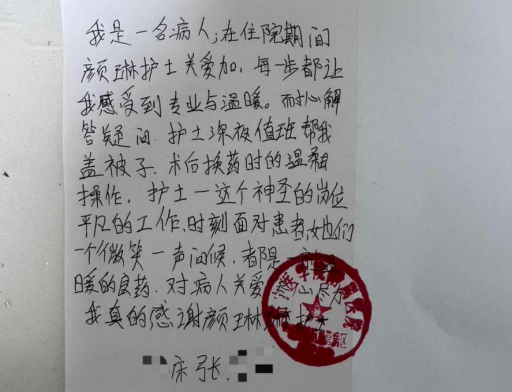 我是一名病人;在住院期间
颜琳护士关爱加,每一步都让
我感受到专业与温暖。而才心解
答疑问.护士深夜值班帮我
盖被子.术后换药时的温柔
操作.护士一这个神圣的岗位
平凡的工作.时刻面对患者,她们
一个微笑一声问候.都是一
暖的良药.对病人关爱
我真的感谢颜琳琳护士
床张.